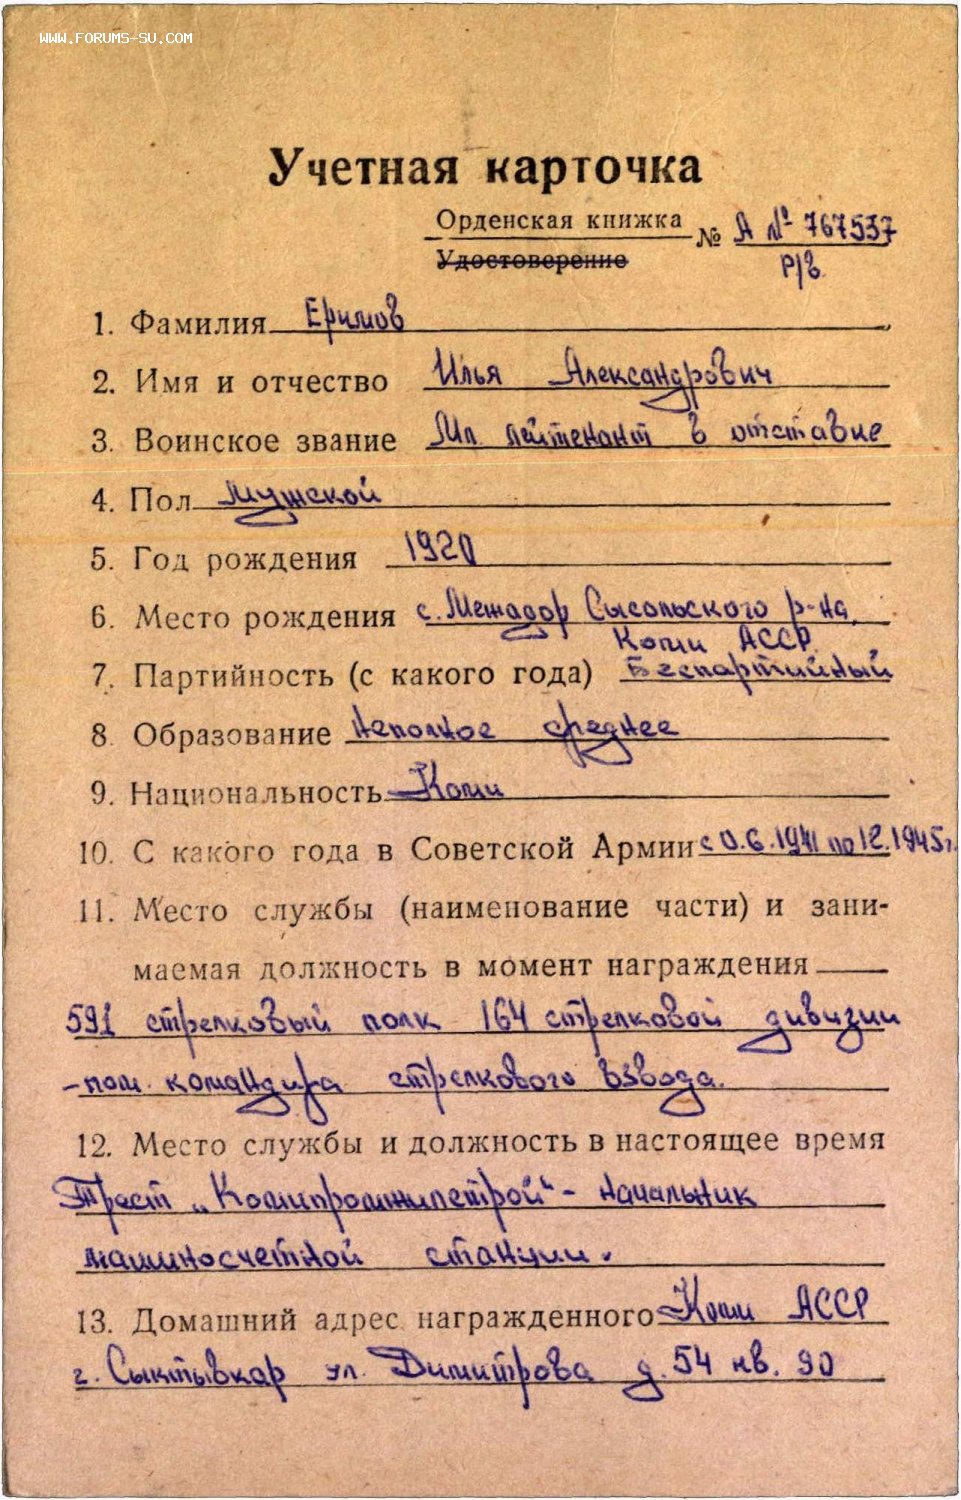 WWW.FORUMS-SU.COM
Учетная карточка
Орденская книжка № А № 767537
Удостоверение
Р/в.
1. Фамилия Еримов
2. Имя и отчество Илья Александрович
3. Воинское звание Мл. лейтенант в отставке
4. Пол Мужской
5. Год рождения 1920
6. Место рождения с. Межадор Сысольского р-на,
Коми АССР.
7. Партийность (с какого года) Беспартийный
8. Образование Неполное среднее
9. Национальность Коми
10. С какого года в Советской Армии с 0.6.1941 по 12.1945г.
11. Место службы (наименование части) и зани-
маемая должность в момент награждения
591 стрелковый полк 164 стрелковой дивизии
-пом. командира стрелкового взвода.
12. Место службы и должность в настоящее время
Трест „Комипромжилстрой“ - начальник
машиносчетной станции.
13. Домашний адрес награжденного Коми АССР
г. Сыктывкар ул. Димитрова д. 54 кв. 90